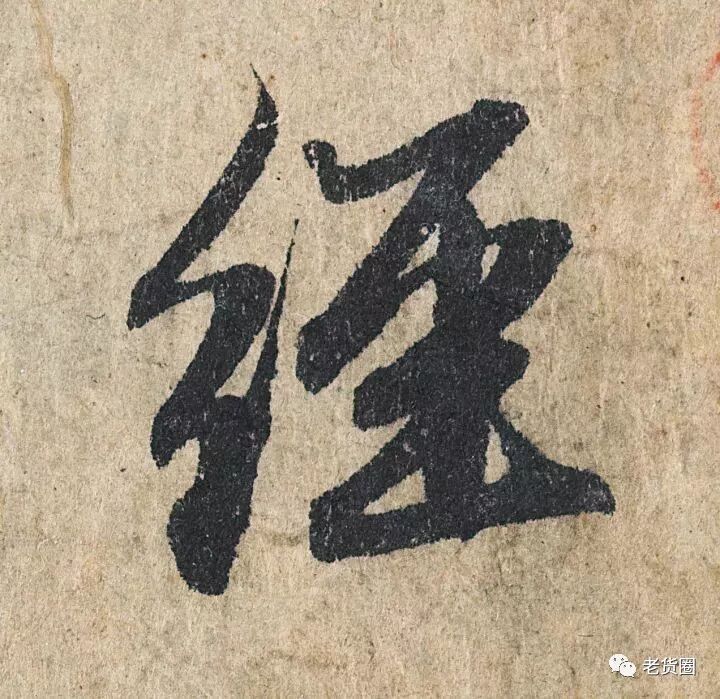 經
老货圈